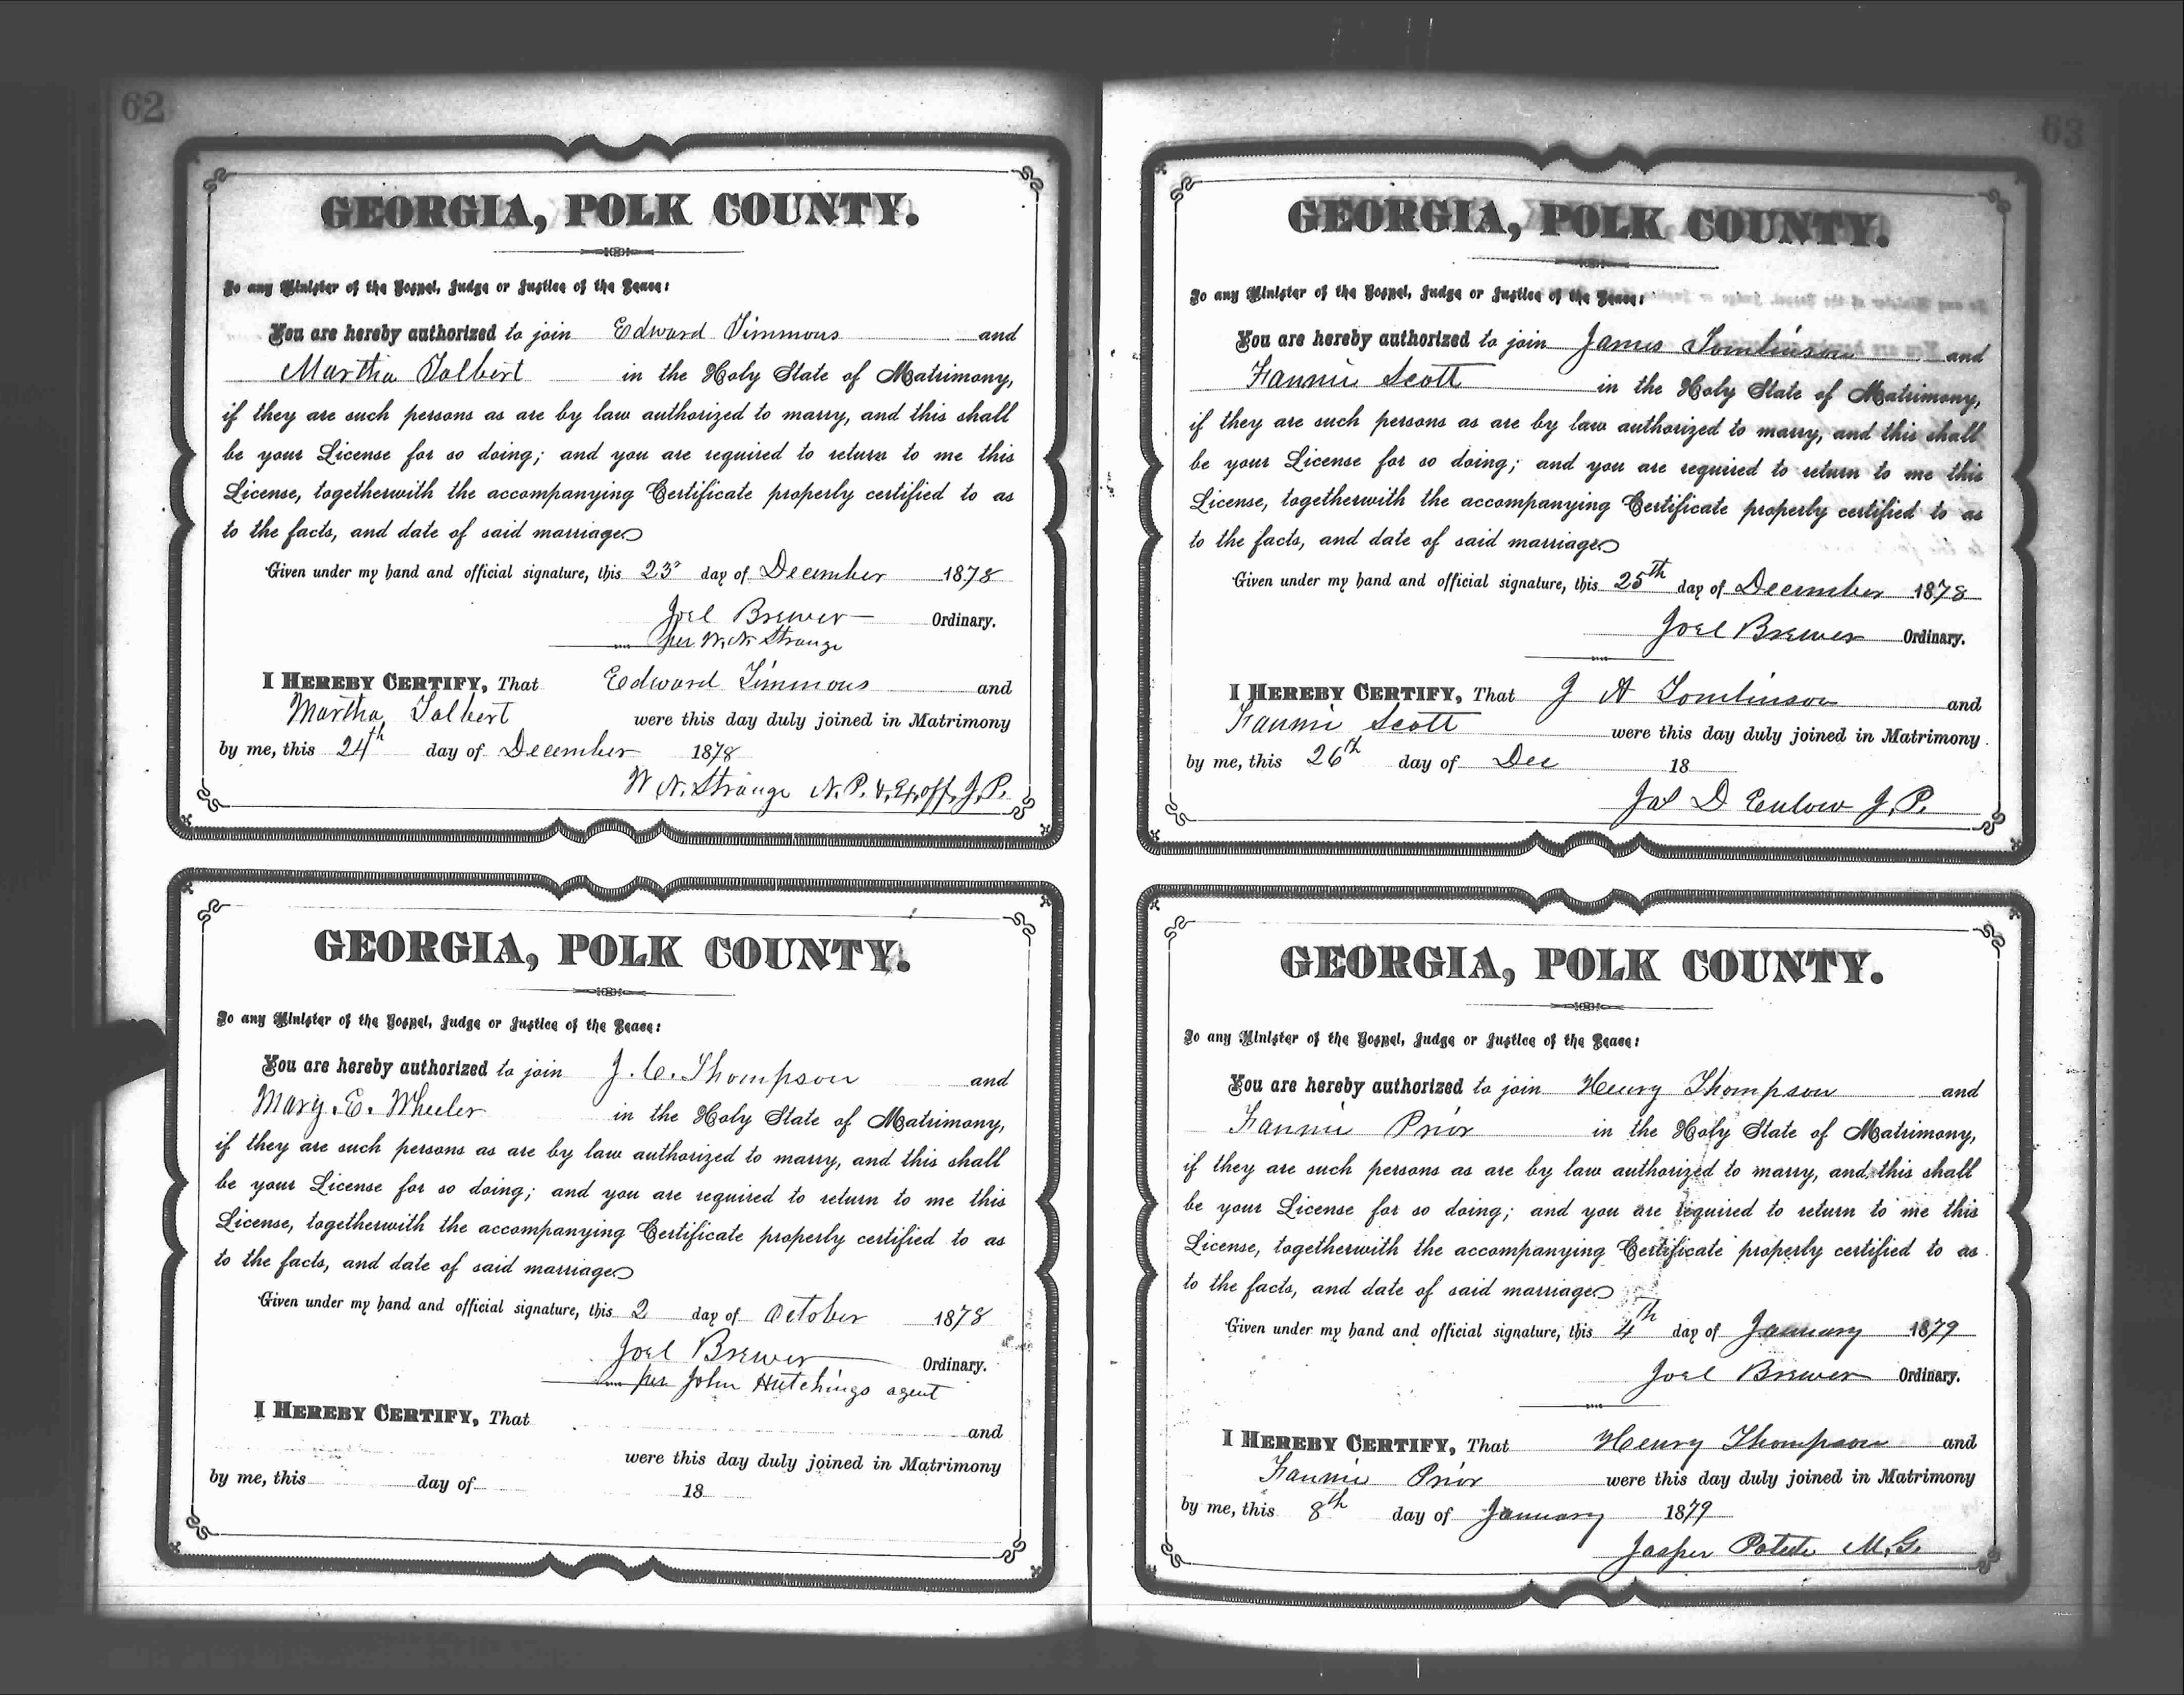 62
GEORGIA, POLK COUNTY.
To any Minister of the Gospel, Judge or Justice of the Peace:
You are hereby authorized to join Edward Timmons and
Martha Tolbert in the Holy State of Matrimony,
if they are such persons as are by law authorized to marry, and this shall
be your License for so doing; and you are required to return to me this
License, togetherwith the accompanying Certificate properly certified to as
to the facts, and date of said marriage
Given under my hand and official signature, this 23d day of December 1878
Joel Brewer Ordinary.
per W. N. Strange
I HEREBY CERTIFY, That Edward Timmons and
Martha Tolbert were this day duly joined in Matrimony
by me, this 24th day of December 1878
W N. Strange N. P. & Ex. off. J. P.
GEORGIA, POLK COUNTY.
To any Minister of the Gospel, Judge or Justice of the Peace:
You are hereby authorized to join J. C. Thompson and
Mary. E. Wheeler in the Holy State of Matrimony,
if they are such persons as are by law authorized to marry, and this shall
be your License for so doing; and you are required to return to me this
License, togetherwith the accompanying Certificate properly certified to as
to the facts, and date of said marriage
Given under my hand and official signature, this 2 day of October 1878
Joel Brewer Ordinary.
per John Hutchings agent
I HEREBY CERTIFY, That
and
were this day duly joined in Matrimony
by me, this day of 18
63
GEORGIA, POLK COUNTY.
To any Minister of the Gospel, Judge or Justice of the Peace:
You are hereby authorized to join James Tomlinson and
Fannie Scott in the Holy State of Matrimony,
if they are such persons as are by law authorized to marry, and this shall
be your License for so doing; and you are required to return to me this
License, togetherwith the accompanying Certificate properly certified to as
to the facts, and date of said marriage
Given under my hand and official signature, this 25th day of December 1878
Joel Brewer Ordinary.
I HEREBY CERTIFY, That J A Tomlinson and
Fannie Scott were this day duly joined in Matrimony
by me, this 26th day of Dec 18
Jas D Enlow J. P.
GEORGIA, POLK COUNTY.
To any Minister of the Gospel, Judge or Justice of the Peace:
You are hereby authorized to join Henry Thompson and
Fannie Prior in the Holy State of Matrimony,
if they are such persons as are by law authorized to marry, and this shall
be your License for so doing; and you are required to return to me this
License, togetherwith the accompanying Certificate properly certified to as
to the facts, and date of said marriage
Given under my hand and official signature, this 4th day of January 1879
Joel Brewer Ordinary.
I HEREBY CERTIFY, That Henry Thompson and
Fannie Prior were this day duly joined in Matrimony
by me, this 8th day of January 1879
Jasper Potete M. G.